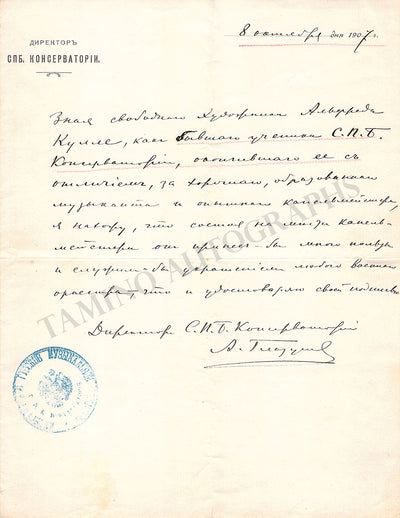 ДИРЕКТОРЪ
СПБ. КОНСЕРВАТОРІИ.
8 октября дня 1907 г.
Зная свободнаго Художника Альфреда
Кулле, какъ бывшаго ученика С.П.Б.
Консерваторіи, окончившаго ее съ
отличіемъ, за хорошаго, образованнаго
музыканта и опытнаго капельмейстера,
я нахожу, что состоя на мѣстѣ капель-
мейстера онъ принесъ-бы много пользы
и служилъ-бы украшеніемъ любого военнаго
оркестра, что и удостовѣряю своей подписью
Директоръ С.П.Б. Консерваторіи
А. Глазуновъ
TAMINO AUTOGRAPHS